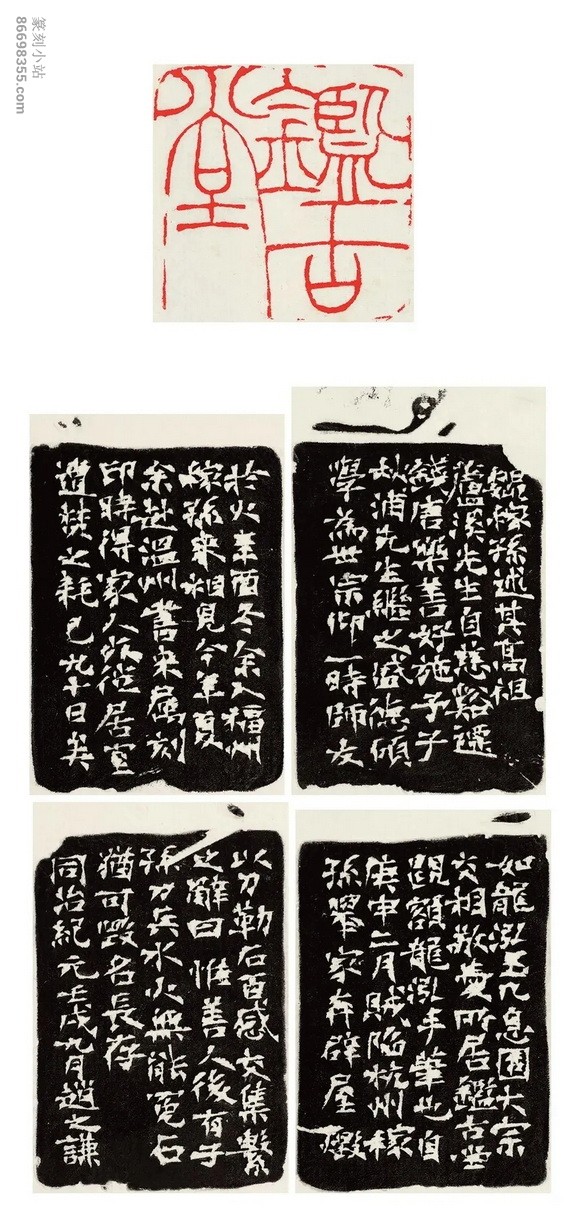 篆刻小站
86698355.com
鑑古
堂
魏稼孫述其高祖
廬溪先生自慈谿遷
錢唐樂善好施予子
秋浦先生繼之盛德碩
學為世宗仰一時師友
如龍泓玉几息園大宗
交相敬愛所居鑑古堂
題額龍泓手筆也自
庚申二月賊陷杭州稼
孫舉家奔辟屋燬
於火辛酉冬余入福州
稼孫來相見今年夏
余赴溫州書來屬刻
印時得家人咏從居室
遭焚之耗已九十日矣
以刀勒石百感交集繫
之辭曰惟善人後有子
孫刀兵水火無能冤石
猶可毀名長存
同治紀元壬戌九月趙之謙